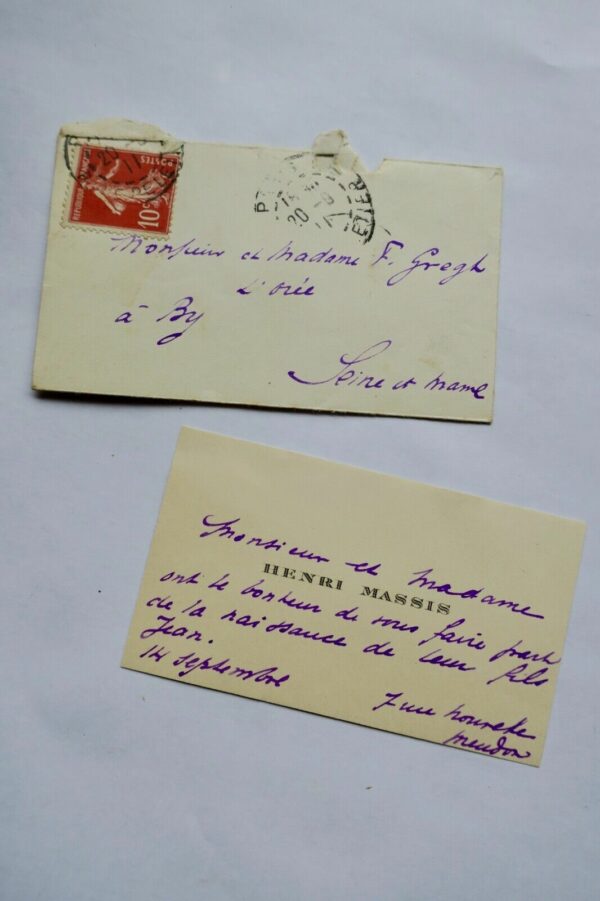 POSTES
10c
Monsieur et Madame F. Gregh
L'orée
à By
Seine et Marne
Monsieur et Madame
HENRI MASSIS
ont le bonheur de vous faire part
de la naissance de leur fils
Jean.
14 septembre
7 rue nouvelle
Meudon